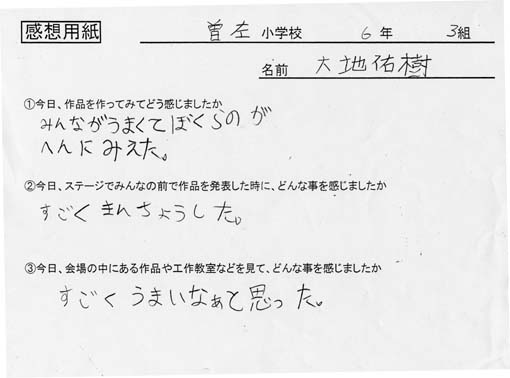 感想用紙
曽左 小学校 6 年 3組
名前 大地佑樹
①今日、作品を作ってみてどう感じましたか
みんながうまくてぼくらのが
へんにみえた。
②今日、ステージでみんなの前で作品を発表した時に、どんな事を感じましたか
すごくきんちょうした。
③今日、会場の中にある作品や工作教室などを見て、どんな事を感じましたか
すごくうまいなぁと思った。